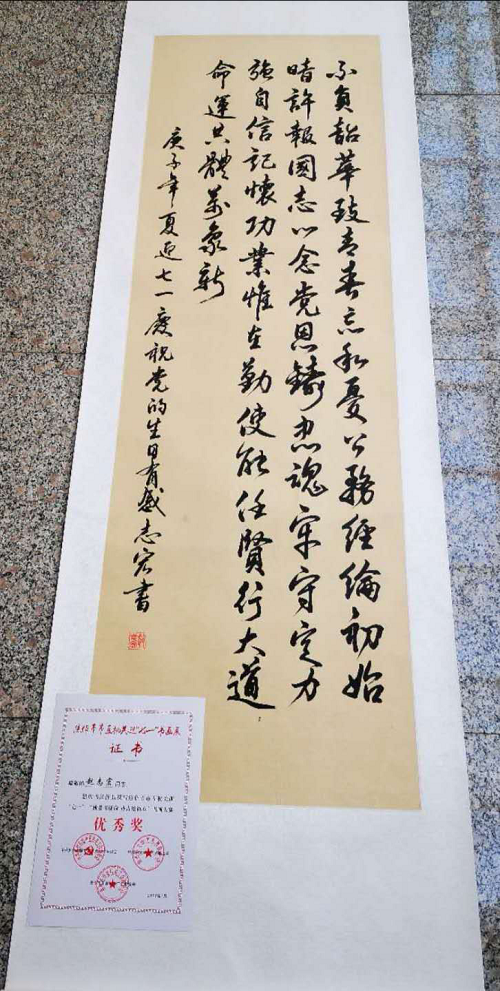 不負韶華致青春忘私憂公務經綸初始
暗許報國志心念党恩鑄忠魂牢守定力
強自信記懷功業惟在勤使能任賢行大道
命運共體萬象新
庚子年夏迎七一慶祝党的生日有感志宏書
证书
优秀奖